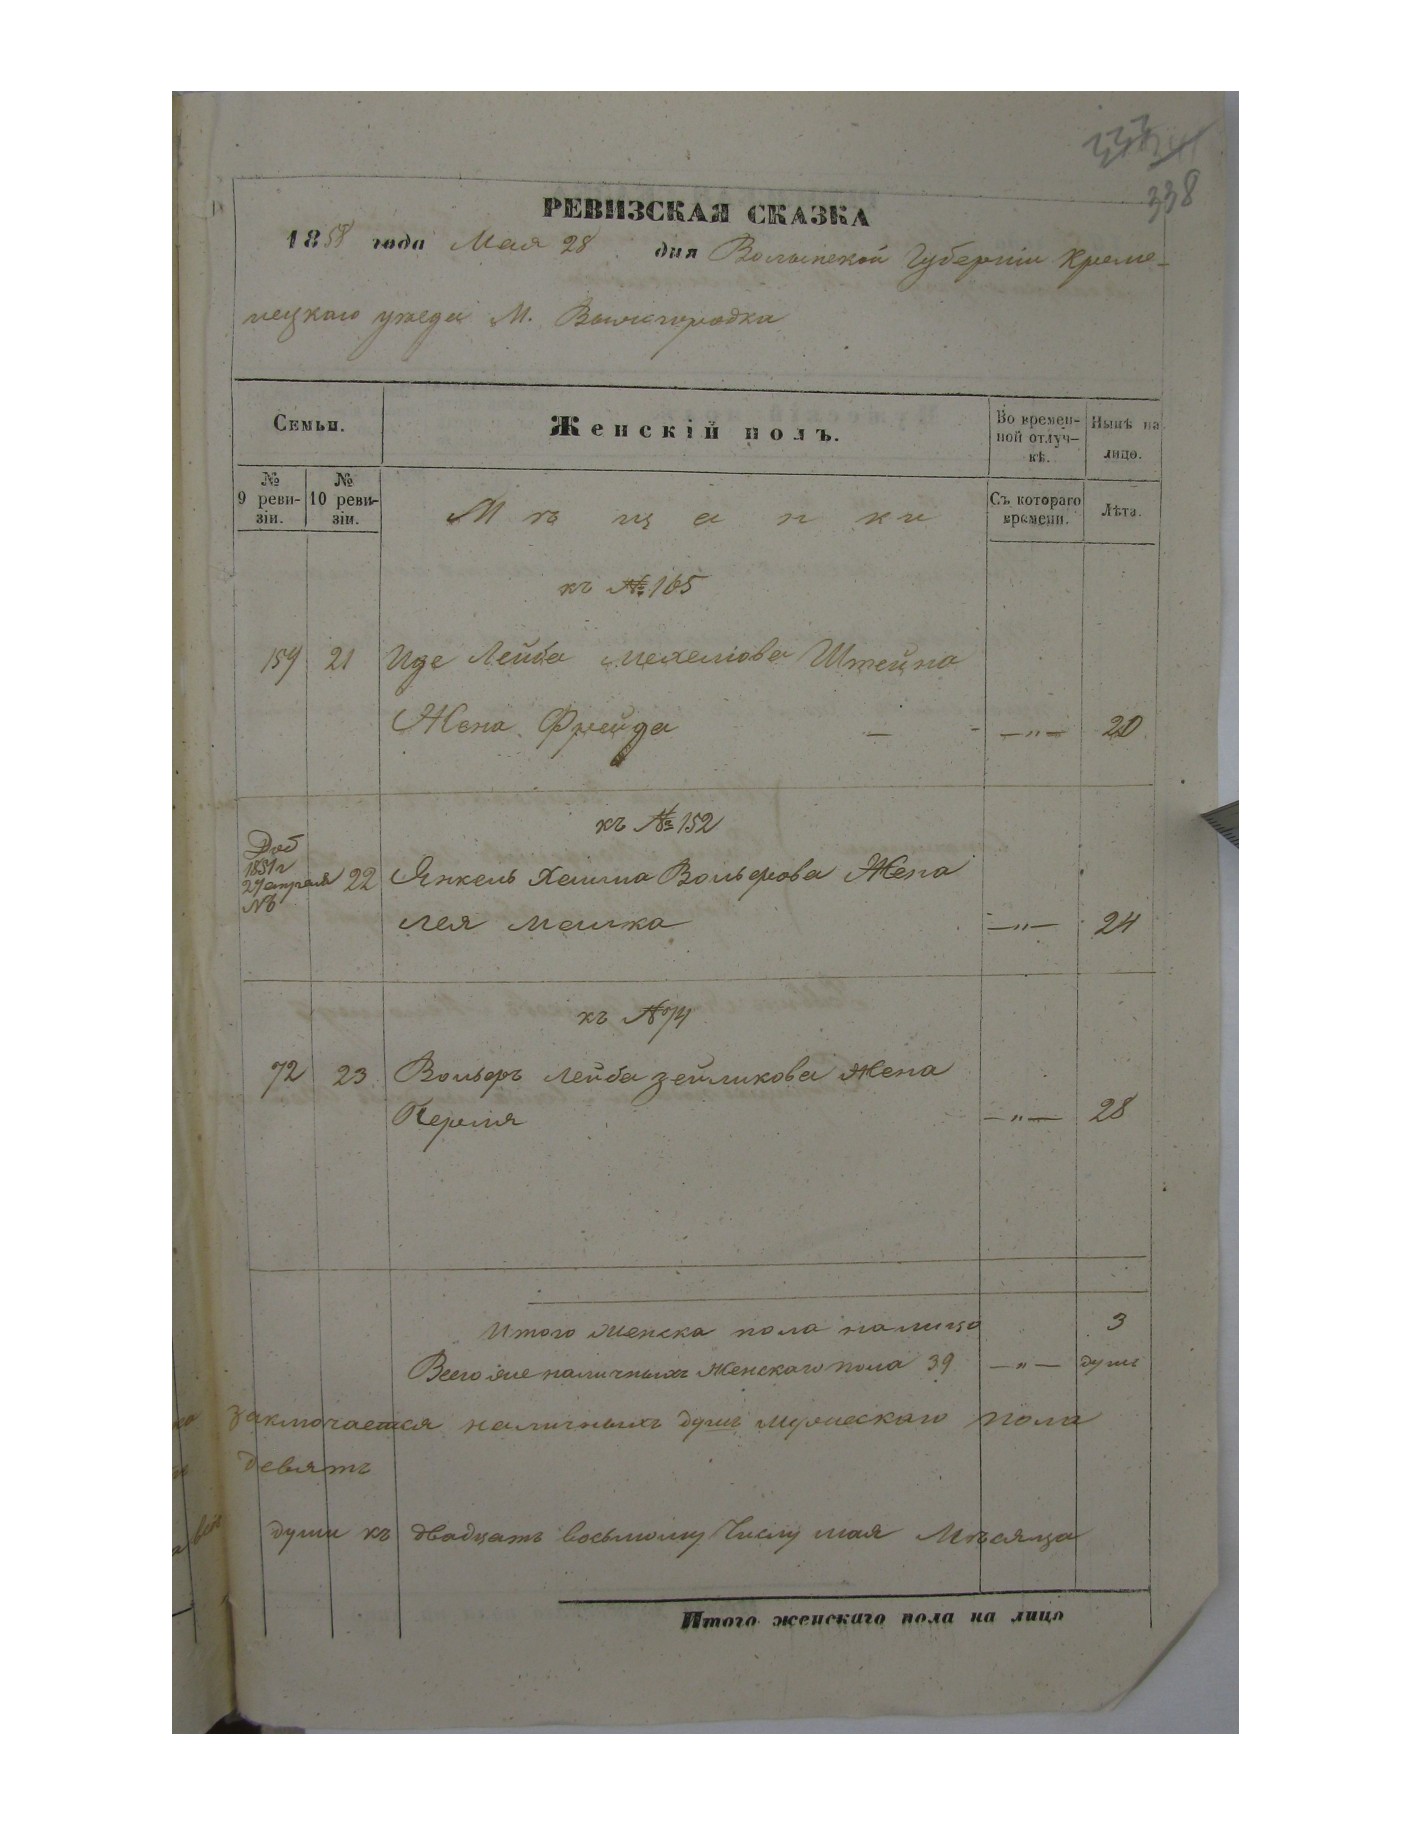 338
РЕВИЗСКАЯ СКАЗКА
1858 года Мая 28 дня Волынской Губерніи Креме-
нецкаго уезда М. Вышгородка
Семьи.
Женскій полъ.
Во времен-
ной отлуч-
кѣ.
Нынѣ на
лицо.
№
9 реви-
зіи.
№
10 реви-
зіи.
Мѣщанки
Съ котораго
времени.
Лѣта.
къ № 165
159 21 Иде Лейба Мехелюва Штейна
Жена Фрейда - - —"— 20
къ № 152
Доб
1851 г
29 апреля
№
22 Янкель Хаима Вольфова Жена
Лея Малка —"— 24
къ № 74
72 23 Вольфъ Лейба Зейликова Жена
Перля —"— 28
Итого женска пола налицо 3
Всего же наличныхъ Женскаго пола 39 —"— душъ
Заключается наличныхъ душъ мужескаго пола
девять
души къ двадцать восьмому Числу мая Мѣсяца
Итого женскаго пола на лицо